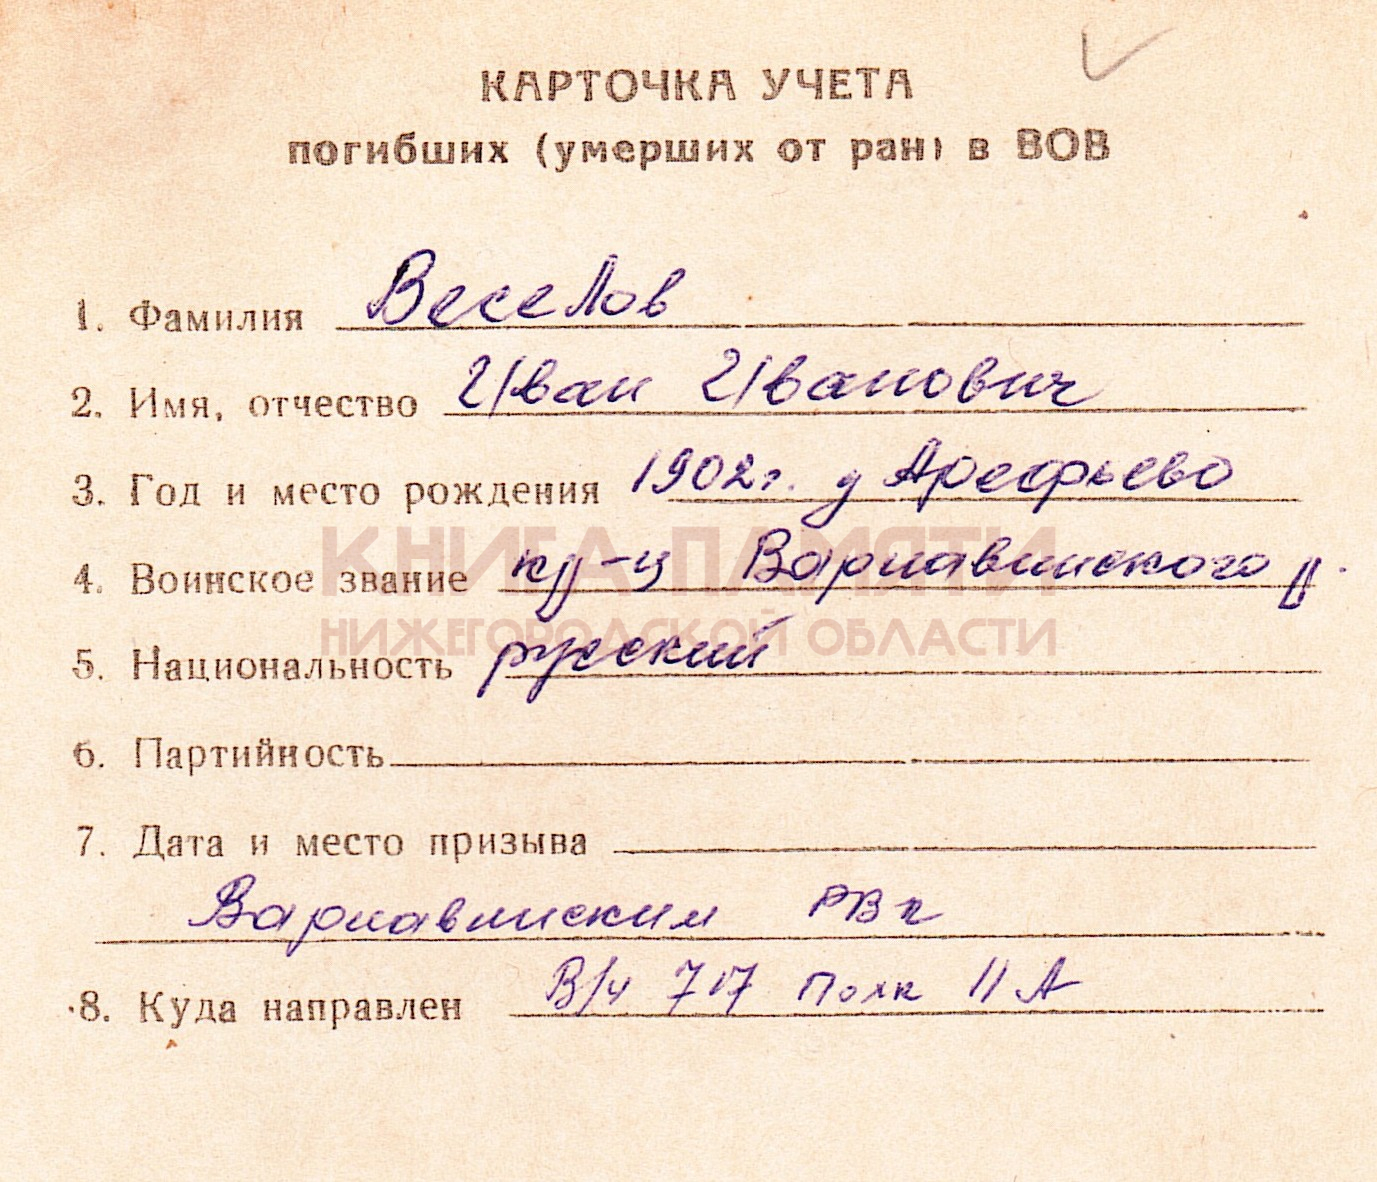 КАРТОЧКА УЧЕТА
погибших (умерших от ран) в ВОВ
1. Фамилия Веселов
2. Имя, отчество Иван Иванович
3. Год и место рождения 1902г. д Арефьево
4. Воинское звание кр-ц Варнавинского р.
КНИГА ПАМЯТИ
НИЖЕГОРОДСКОЙ ОБЛАСТИ
5. Национальность русский
6. Партийность
7. Дата и место призыва
Варнавинским РВк
8. Куда направлен В/ч 717 полк 11А